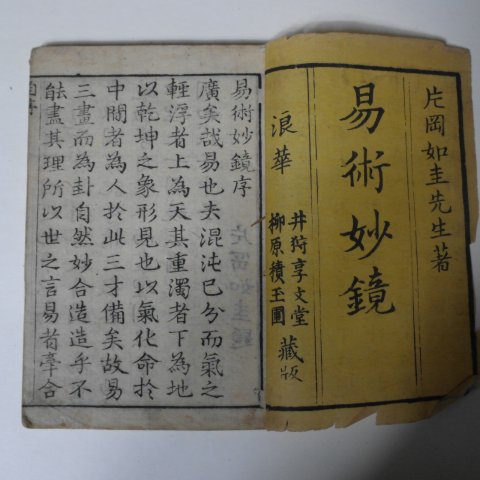 片岡如圭先生著
易術妙鏡
浪華
井狩享文堂
柳原積玉圃
藏版
易術妙鏡序
廣矣哉易也夫混沌已分而氣之
輕浮者上為天其重濁者下為地
以乾坤之象形見也以氣化命於
中間者為人於此三才備矣故易
三畫而為卦自然妙合造造乎不
能盡其理所以世之言易者牽合